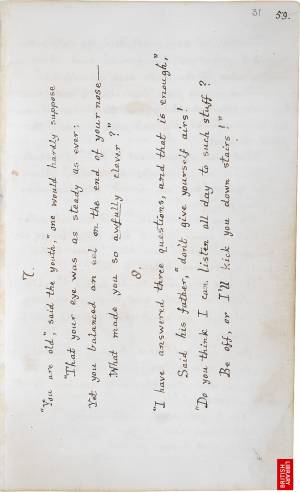 31
59.
7.
"You are old," said the youth, "one would hardly suppose
"That your eye was as steady as ever:
Yet you balanced an eel on the end of your nose—
What made you so awfully clever?"
8.
"I have answered three questions, and that is enough,"
Said his father, "don't give yourself airs!
"Do you think I can listen all day to such stuff?
Be off, or I'll kick you down stairs!"
BRITISH
LIBRARY